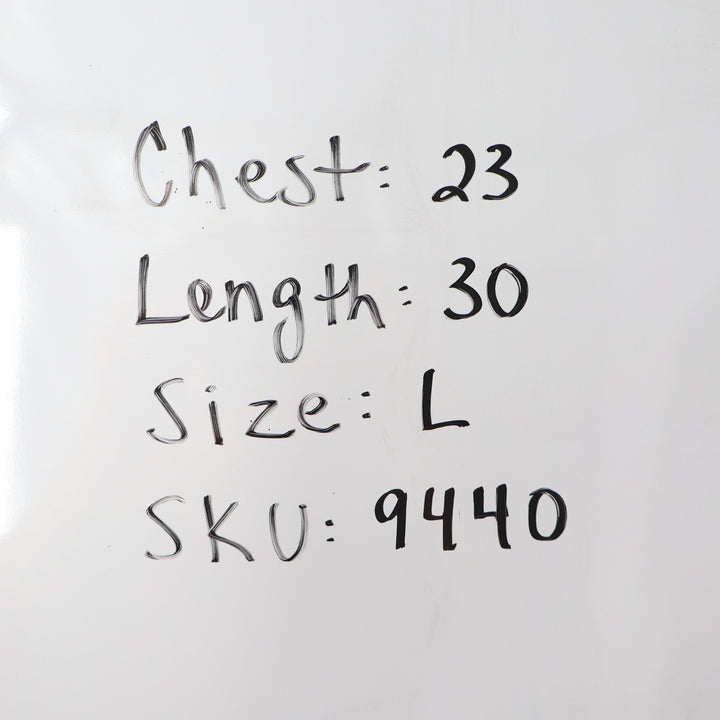 Chest: 23
Length: 30
Size: L
SKU: 9440